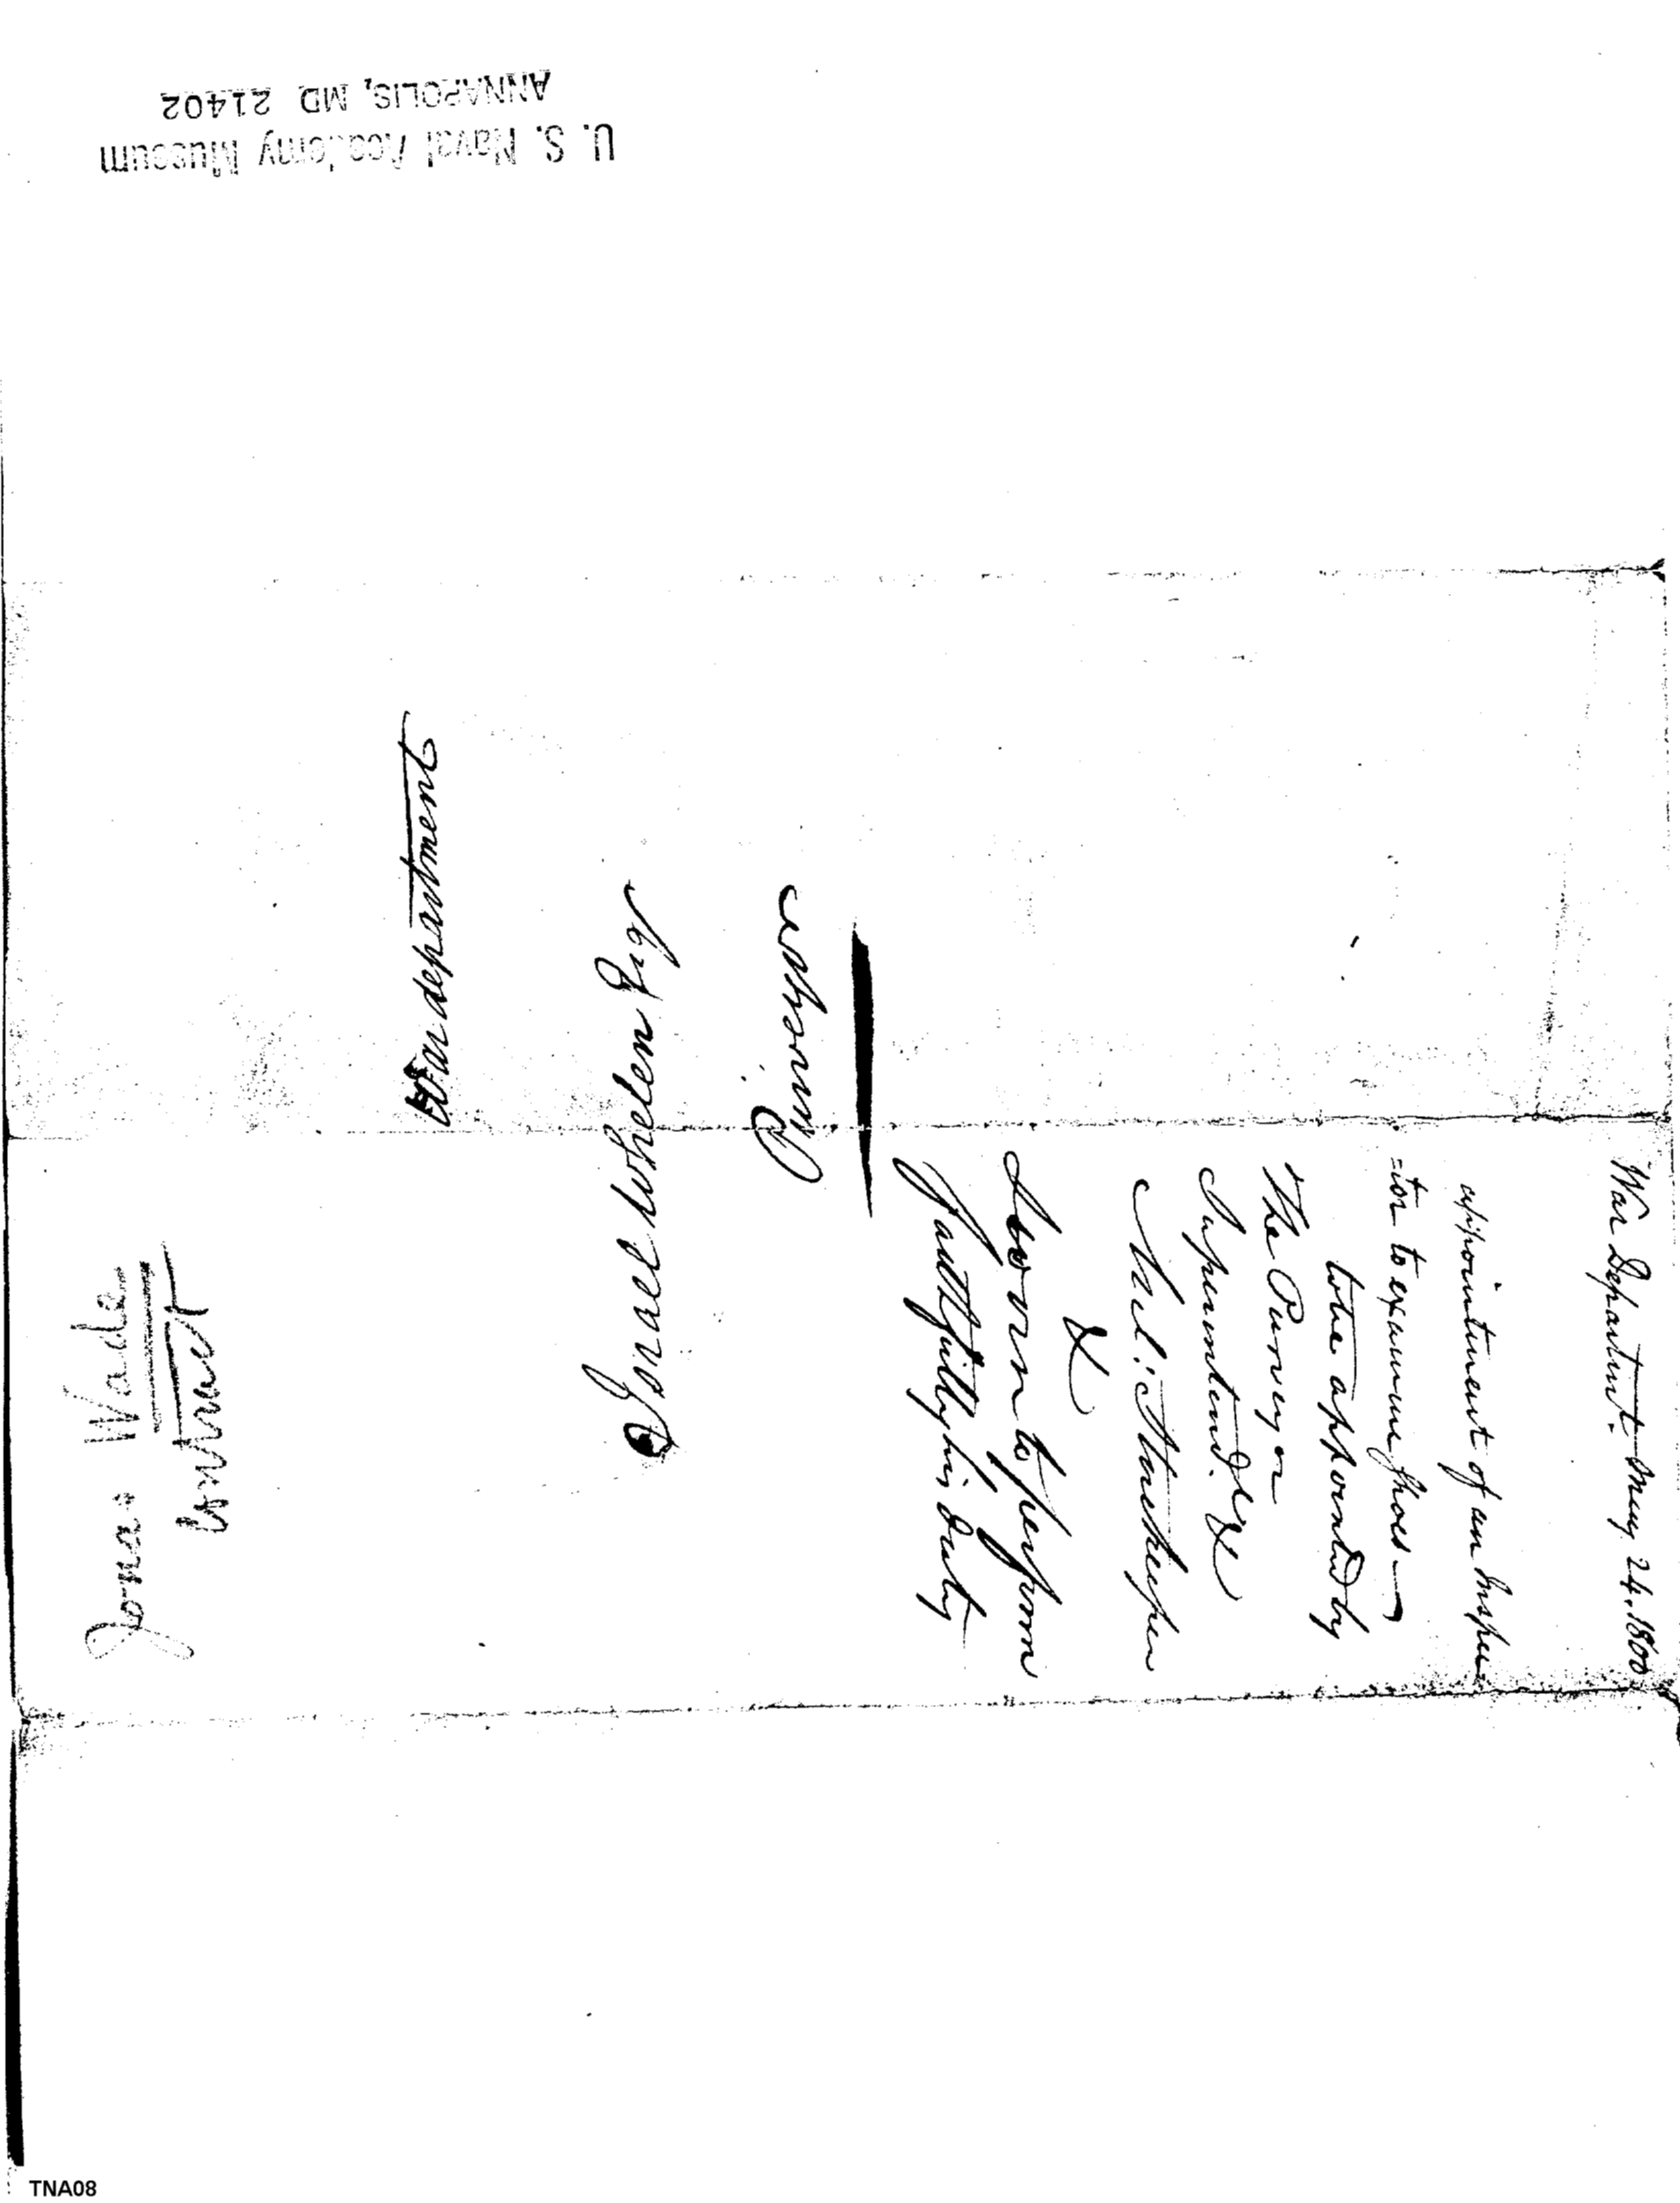 U. S. Naval Academy Museum
ANNAPOLIS, MD 21402
Jonas Wade
Contract
War department
Israel Whelen Esqr
Purveyor
War Departmt. May 24. 1800
appointment of an Inspec
=tor to examine shoes—
to be appointed by
the Purveyor
Superintend. &
Mil: Storekeeper
&
Sworn to perform
faithfully his duty
TNA08